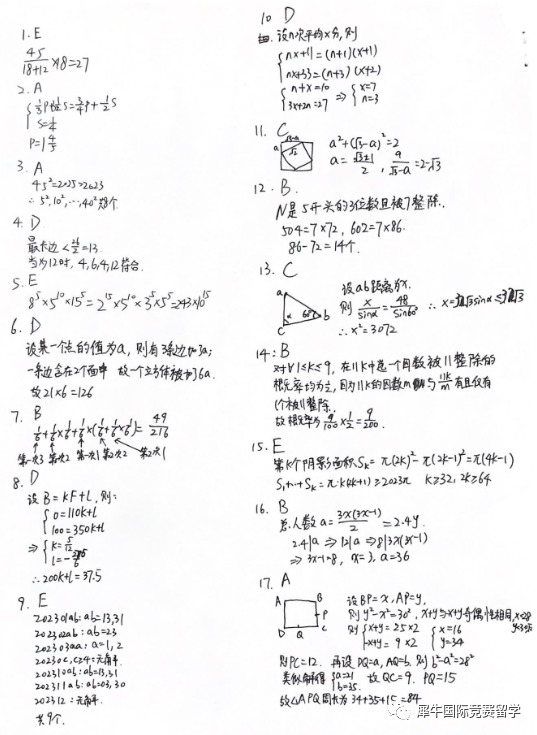 1. E
45/(18+12) ×18=27
2. A
S=1/4
3. A
45²=2025>2023
∴ 5²,10²,…,40²
4. D.
最长边 < 26/2 =13.
当为12时, 4,6,4,12符合.
5. E
8⁵×5¹⁰×15⁵=2¹⁵×5¹⁰×3⁵×5⁵=243×10¹⁵
6. D
设某一个点的值为a, 则有3条边加3a;
一条边含在2个面中 故一个立方体被加6a.
故21×6=126
7. B
1/6+1/6×1/6+1/6×(1/6+1/6×1/6)=49/216
第一次3 第一次2 第一次1 第二次2 第二次1
8. D
设 B=kF+l, 则:
0=110k+l
100=350k+l
⇒ k=5/12
∴200k+l=37.5
9. E
202301ab: ab=13,31
202302ab: ab=23
202303aa: a=1,2
20230c, c≥4:无解.
202310ab: ab=13,31
202311ab: ab=03,30
202312:无解.
共9个.
10 D
设n次平均x分, 则
nx+11=(n+1)(x+1)
nx+33=(n+3)(x+2)
n+x=10
3x+2n=27 ⇒ x=7
n=3
11. C
a
√3-a
√2
a²+(√3-a)²=2
a=(√3+1)/2
12. B.
N是5开头的3位数且被7整除.
504=7×72, 602=7×86.
86-72=14个.
13. C
a
c
b
60°
设ab距离为x.
则 x/sinα = 48/sin60°
∴x²=3072
14: B
对∀1≤k≤9, 在11k中选一个因数被11整除的
概率均为1/2, 因为11k的因数m与11k/m有且仅有
1个被11整除.
故概率为 9/100×1/2=9/200.
15. E
第k个阴影面积Sₖ= π(2k)²-π(2k-1)²=π(4k-1)
k≥32, 2k≥64
16. B
总人数a=3x(3x-1)/2=2.4y.
2.4|a ⇒12|a ⇒8|3x(3x-1)
⇒3x-1=8, x=3, a=36
17. A
A B
P
D Q C
设BP=x, AP=y,
则y²-x²=30², x+y与x-y奇偶性相同,
x=16
y=34
则PC=12. 再设PQ=a, AQ=b, 则b²-a²=28²
类似解得 a=21
b=35. 故QC=9. PQ=15
故△APQ周长为34+35+15=84
犀牛国际竞赛留学